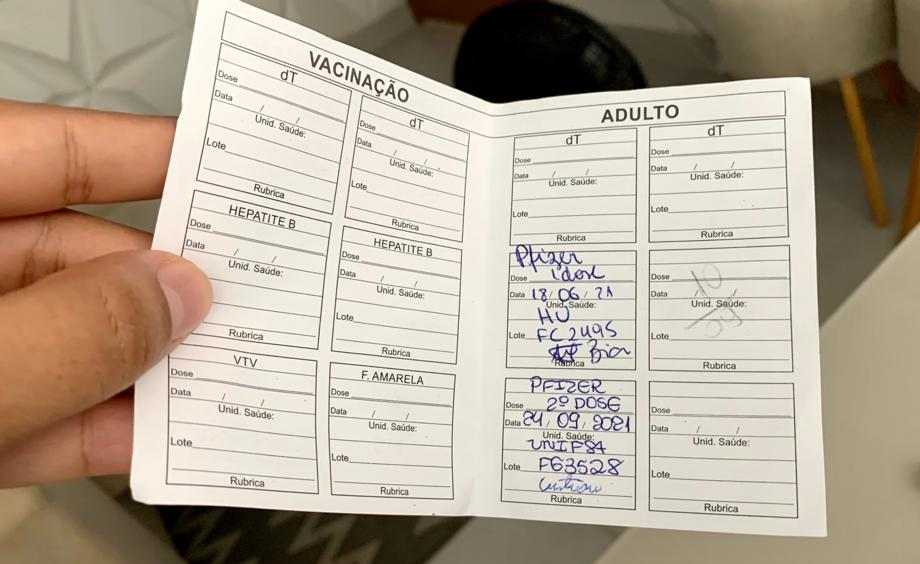 VACINAÇÃO
dT
Dose
Data / /
Unid. Saúde:
Lote
Rubrica
dT
Dose
Data / /
Unid. Saúde:
Lote
Rubrica
HEPATITE B
Dose
Data / /
Unid. Saúde:
Rubrica
HEPATITE B
Dose
Data / /
Unid. Saúde:
Lote
Rubrica
VTV
Dose
Data / /
Unid. Saúde:
Lote
Rubrica
F. AMARELA
Dose
Data / /
Unid. Saúde:
Lote
Rubrica
ADULTO
dT
Dose
Data / /
Unid. Saúde:
Lote
Rubrica
dT
Dose
Data / /
Unid. Saúde:
Lote
Rubrica
Pfizer
Dose 1 dose
Data 18/06/21
Unid. Saúde:
HU
Lote FC2495
Bia
Rubrica
Dose
Data / /
Unid. Saúde:
Lote
Rubrica
PFIZER
Dose 2º DOSE
Data 24/09/2021
Unid. Saúde:
Lote FG3528
Rubrica
Dose
Data / /
Unid. Saúde:
Lote
Rubrica